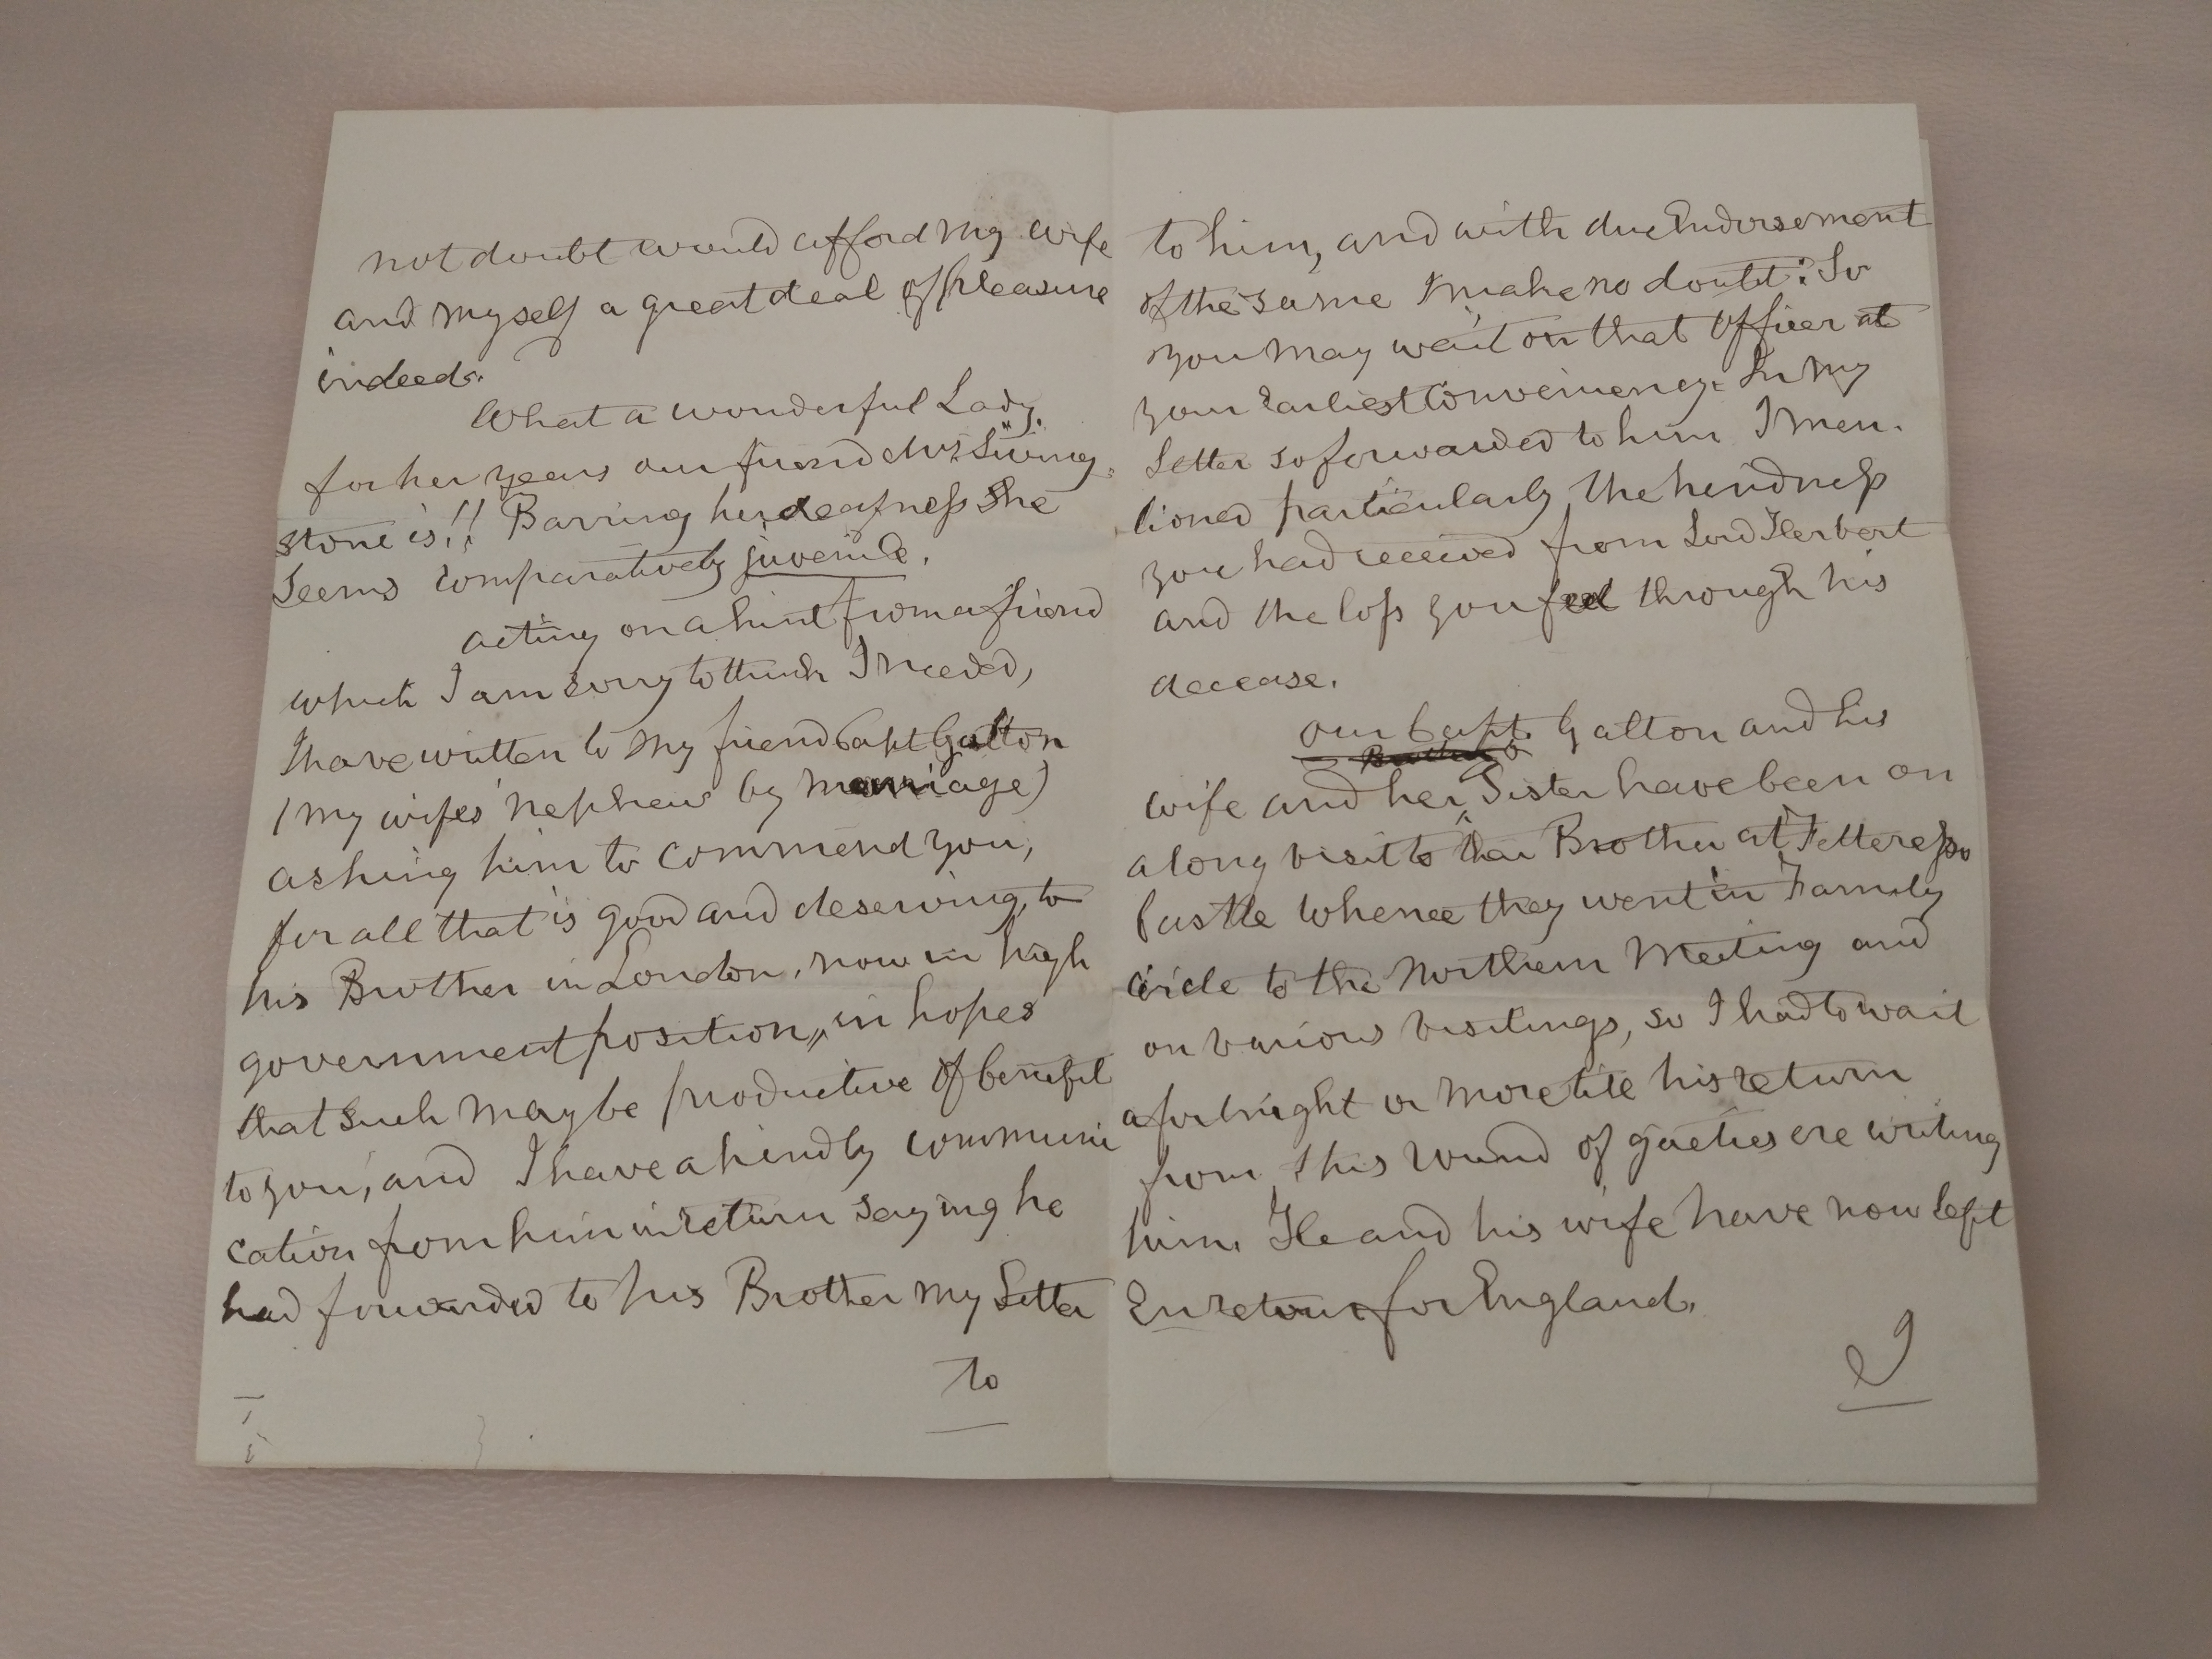 not doubt would afford my wife
and myself a great deal of pleasure
indeed.
What a wonderful Lady,
for her years our friend Mrs. Living-
stone is!! Barring her deafness She
Seems comparatively juvenile.
acting on a hint from a friend
which I am sorry to think I needed,
I have written to my friend Capt Galton
(my wifes' nephew by marriage)
asking him to commend you,
for all that is good and deserving, to
his Brother in London, now in high
government position,, in hopes
that such may be productive of benefit
to you, and I have a kindly communi
cation from him in return saying he
had forwarded to his Brother my Letter
To
to him, and with due Endorsement
of the same I make no doubt: So
you may wait on that Officer at
your Earliest Conveniency. In my
Letter so forwarded to him I men-
tioned particularly the kindness
you had received from Lord Herbert
and the loss you feel through his
decease.
our Capt. Galton and his
wife and her Sister have been on
a long visit to their Brother at Fetteresso
Castle whence they went in Family
circle to the Northern Meeting and
on various visitings, so I had to wait
a fortnight or more till his return
from this round of gaeties ere writing
him. He and his wife have now left
En retour for England.